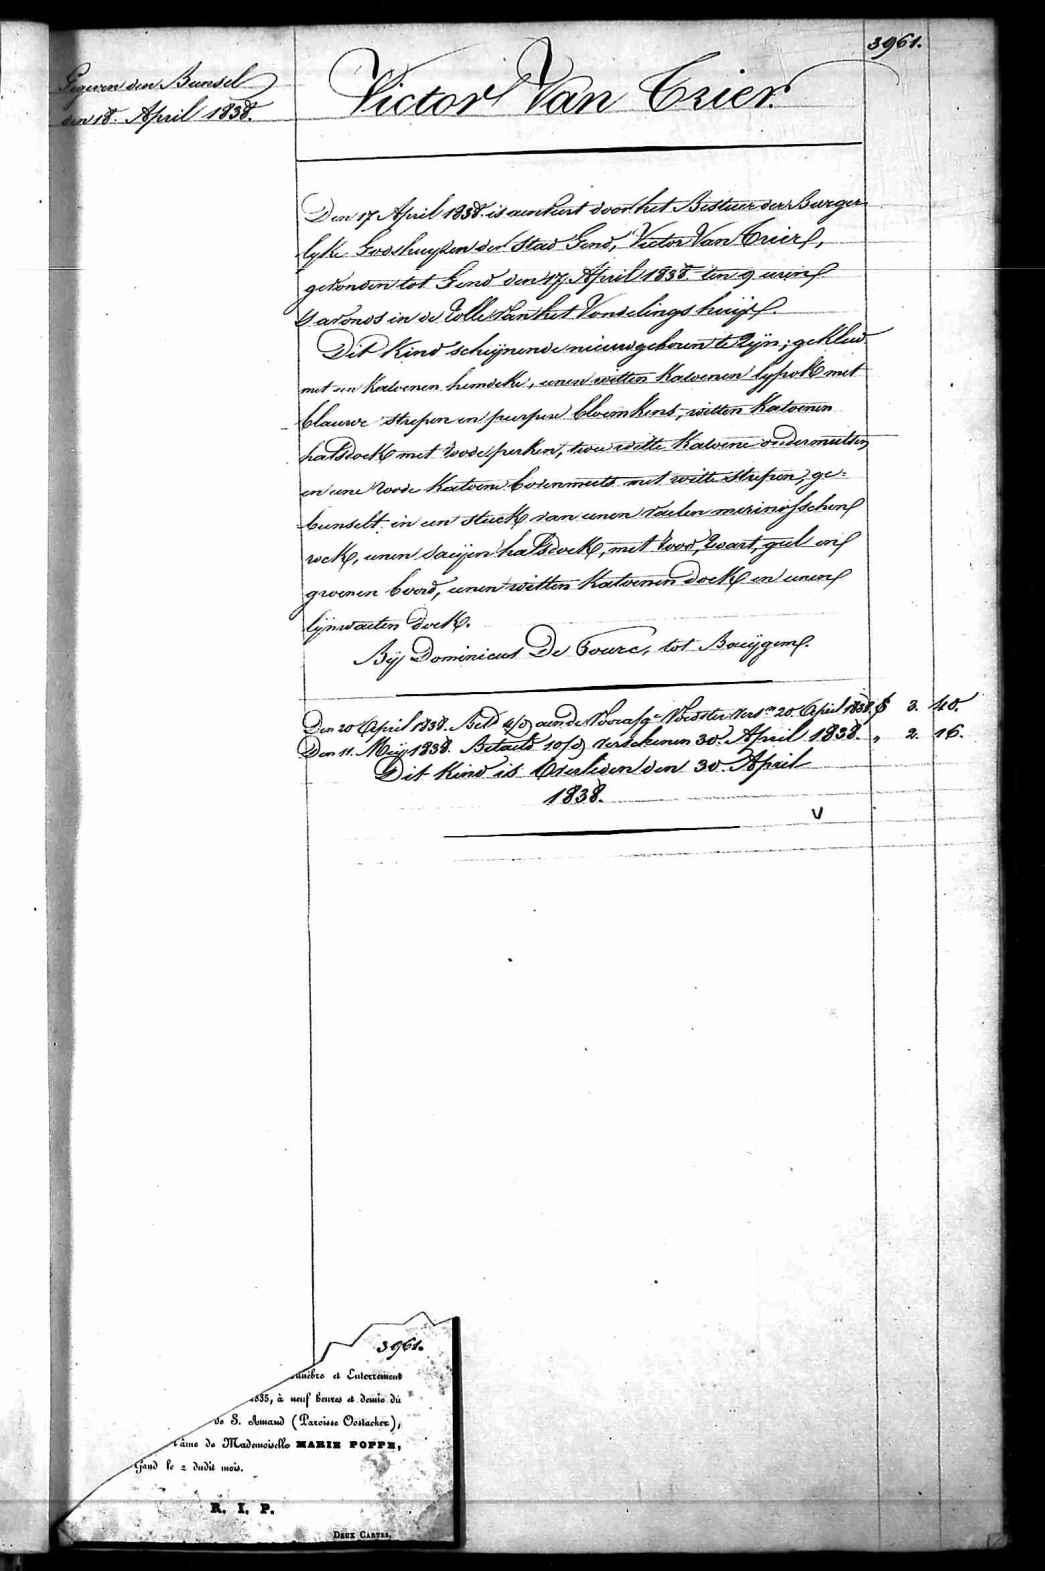 3961.
Gegeven den Bunsel
den 18. April 1838.
Victor Van Trier.
Den 17 April 1838. is aenveirt door het Bestuer der Burger-
lyke Godshuyzen der Stad Gend, Victor Van Trier,
gevonden tot Gend den 17 April 1838. ten 9 uren
s'avonds in de Rolle van het Vondelings huys.
Dit Kind schijnende nieuwgeboren te zijn; gekleed
met een Katoenen hemdeke, eenen witten Katoenen lyfrok met
blauwe strepen en purper bloemkens, witten Katoenen
halsdoek met roode perken, twee witte Katoene ondermutsen,
en eene roode Katoene bovenmuts met witte strepen, ge-
bunselt in een stuck van eenen vaelen merinosschen
rock, eenen saeijen halsdoek, met rood, zwart, geel en
groenen boord, eenen witten Katoenen doek en eenen
lijnwaeten doek.
Bij Dominicus De Fourc, tot Bouÿgem.
Den 20 April 1838. Bet. aen de Voorafg. Voedster Vers. 20. April 1838. f 3. 40.
Den 11. Meij 1838. Betaeld 10/d verschenen 30. April 1838. „ 2. 16.
Dit Kind is Overleden den 30. April
1838.
V
3961.
unèbre et Enterrement
1835, à neuf heures et demie du
de S. Amand (Paroisse Oostacker),
l'âme de Mademoiselle MARIE POPPE,
Gand le 2 dudit mois.
R. I. P.
DEUX CARTES.